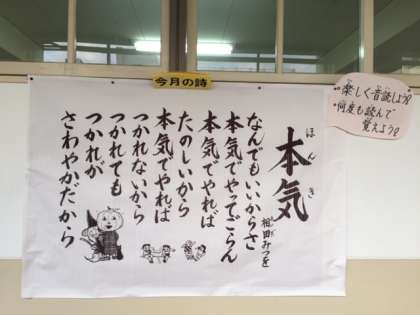 今月の詩
本気
ほんき
相田みつを
なんでもいいからさ
本気でやってごらん
本気でやれば
たのしいから
本気でやれば
つかれないから
つかれても
つかれが
さわやかだから
・楽しく音読しよう。
・何度も読んで
覚えよう。